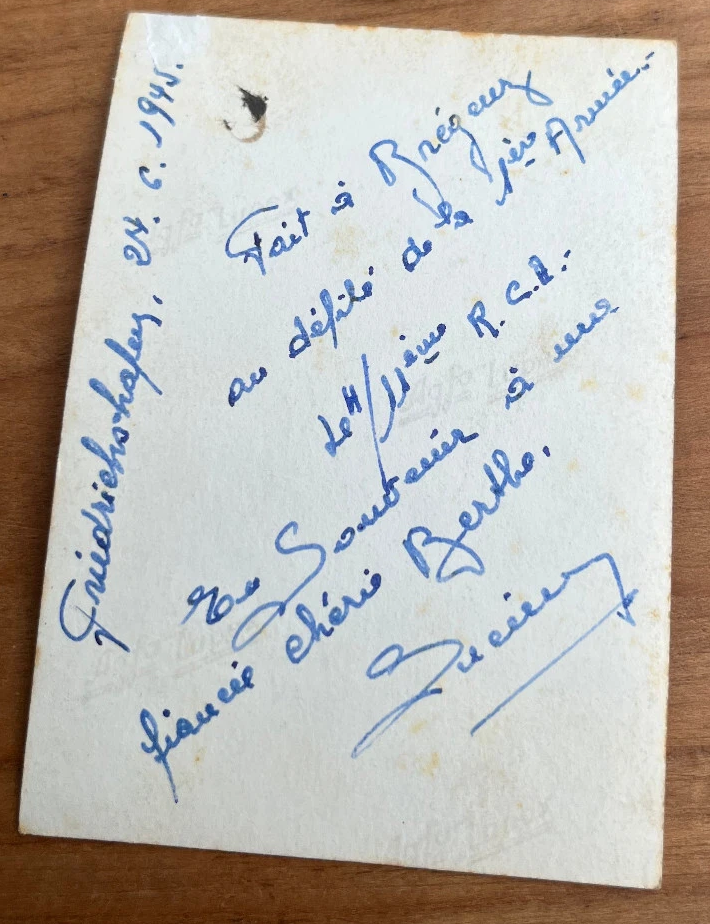 Friedrichshafen, 24. 6. 1945.
Fait à Brégenz
au défilé de la 1ère Armée.
Le 11ème R.C.A.
En Souvenir à une
fiancée chérie Berthe.
Lucien